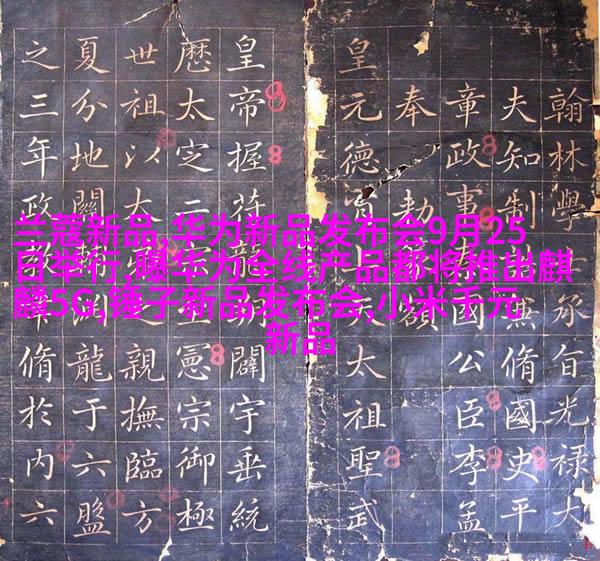 翰林學承旨光祿大
夫知制脩國史平
章政事國公臣李孟
奉
皇元德太祖聖武
皇帝握符闢宇垂統
厯太定二憲宗御極
世祖以太親撫臨方
夏分地關龍于六盤
之三年政脩於内六
兰蔻新品,华为新品发布会9月25
日举行,曝华为全线产品都将推出麒
麟5G,锤子新品发布会,小米千元
新品